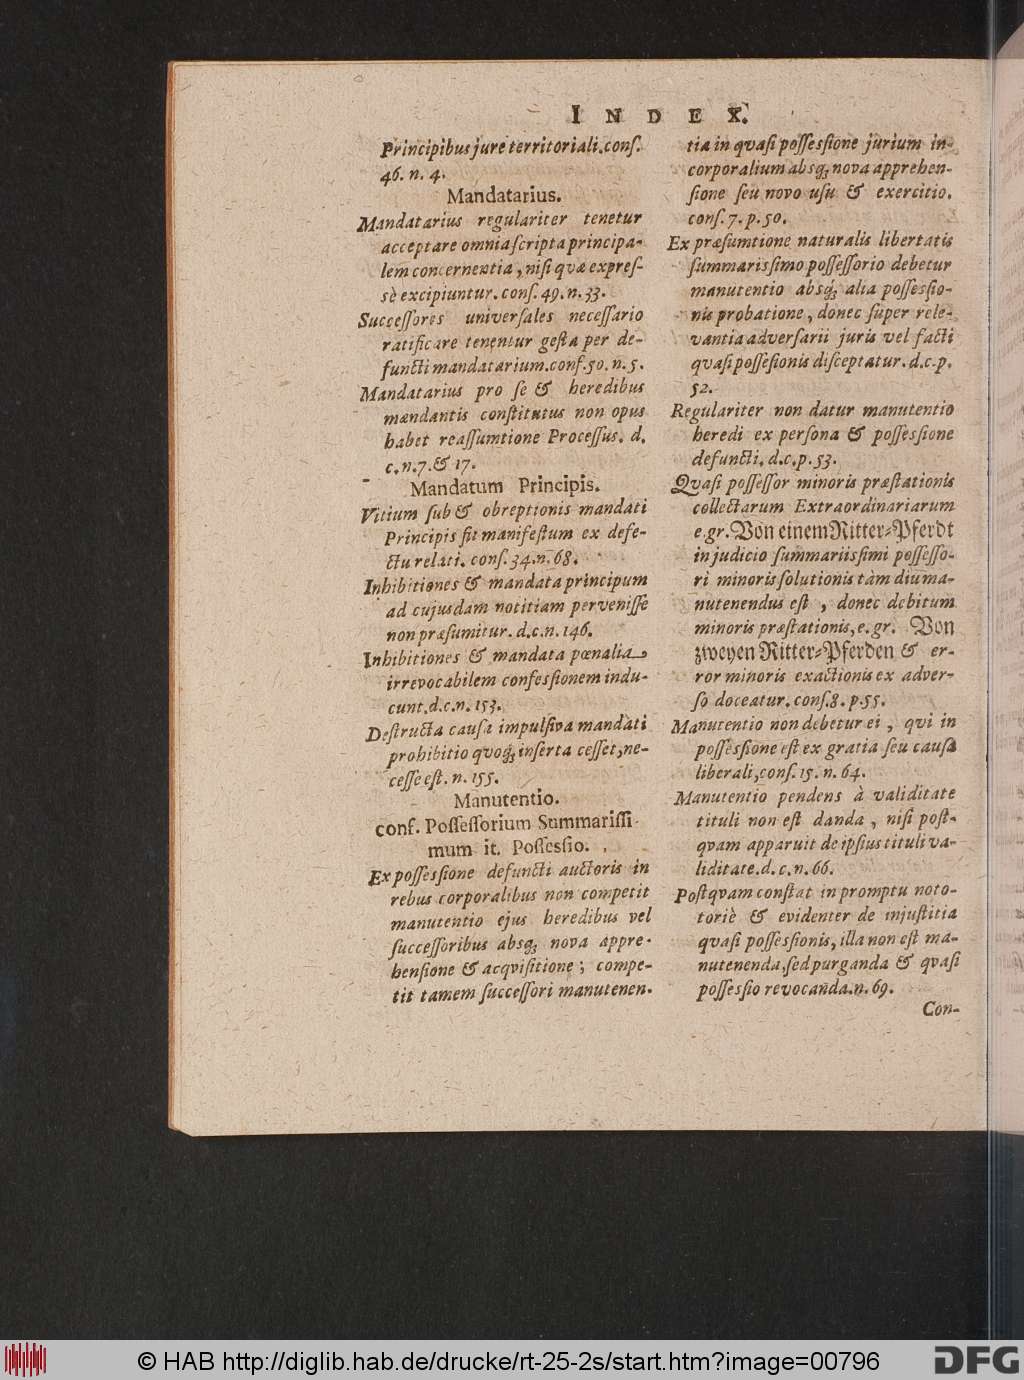 INDEX.
Principibus jure territoriali. conſ.
46. n. 4.
Mandatarius.
Mandatarius regulariter tenetur
acceptare omnia ſcripta principa-
lem concernentia, niſi quæ expreſ-
sè excipiuntur. conſ. 49. n. 33.
Succeſſores univerſales neceſſario
ratificare tenentur geſta per de-
functi mandatarium. conſ. 50. n. 5.
Mandatarius pro ſe & heredibus
mandantis conſtitutus non opus
habet reaſſumtione Proceſſus. d.
c. n. 7. & 17.
Mandatum Principis.
Vitium ſub & obreptionis mandati
Principis fit manifeſtum ex defe-
ctu relati. conſ. 34. n. 68.
Inhibitiones & mandata principum
ad cujusdam notitiam perveniſſe
non præſumitur. d. c. n. 146.
Inhibitiones & mandata pœnalia
irrevocabilem confeſsionem indu-
cunt. d. c. n. 153.
Deſtructa cauſa impulſiva mandati
prohibitio quoq; inſerta ceſſet, ne-
ceſſe eſt. n. 155.
Manutentio.
conf. Poſſeſſorium Summariſſi
mum it. Poſſeſsio.
Ex poſſeſsione defuncti auctoris in
rebus corporalibus non competit
manutentio ejus heredibus vel
ſucceſſoribus absq; nova appre-
henſione & acqviſitione; compe-
tit tamem ſucceſſori manutenen.
tia in qvaſi poſſeſsione jurium in-
corporalium absq; nova apprehen-
ſione ſeu novo uſu & exercitio.
conſ. 7. p. 50.
Ex præſumtione naturalis libertatis
ſummarisſimo poſſeſſorio debetur
manutentio absq; alia poſſeſsio-
nis probatione, donec ſuper rele-
vantia adverſarii juris vel facti
qvaſi poſſeſionis diſceptatur. d. c. p.
52.
Regulariter non datur manutentio
heredi ex perſona & poſſeſsione
defuncti. d. c. p. 53.
Qvaſi poſſeſſor minoris præſtationis
collectarum Extraordinariarum
e. gr. Von einem Ritter-Pferdt
in judicio ſummariisſimi poſſeſſo-
ri minoris ſolutionis tàm diu ma-
nutenendus eſt, donec debitum
minoris præſtationis, e. gr. Von
zweyen Ritter-Pferden & er-
ror minoris exactionis ex adver-
ſo doceatur. conſ. 8. p. 55.
Manutentio non debetur ei, qvi in
poſſeſsione eſt ex gratia ſeu cauſa
liberali, conſ. 15. n. 64.
Manutentio pendens à validitate
tituli non eſt danda, niſi poſt-
qvam apparuit de ipſius tituli va-
liditate. d. c. n. 66.
Poſtqvam conſtat in promptu noto-
toriè & evidenter de injuſtitia
qvaſi poſſeſsionis, illa non eſt ma-
nutenenda, ſed purganda & qvaſi
poſſeſsio revocanda. n. 69.
Con-
© HAB http://diglib.hab.de/drucke/rt-25-2s/start.htm?image=00796
DFG